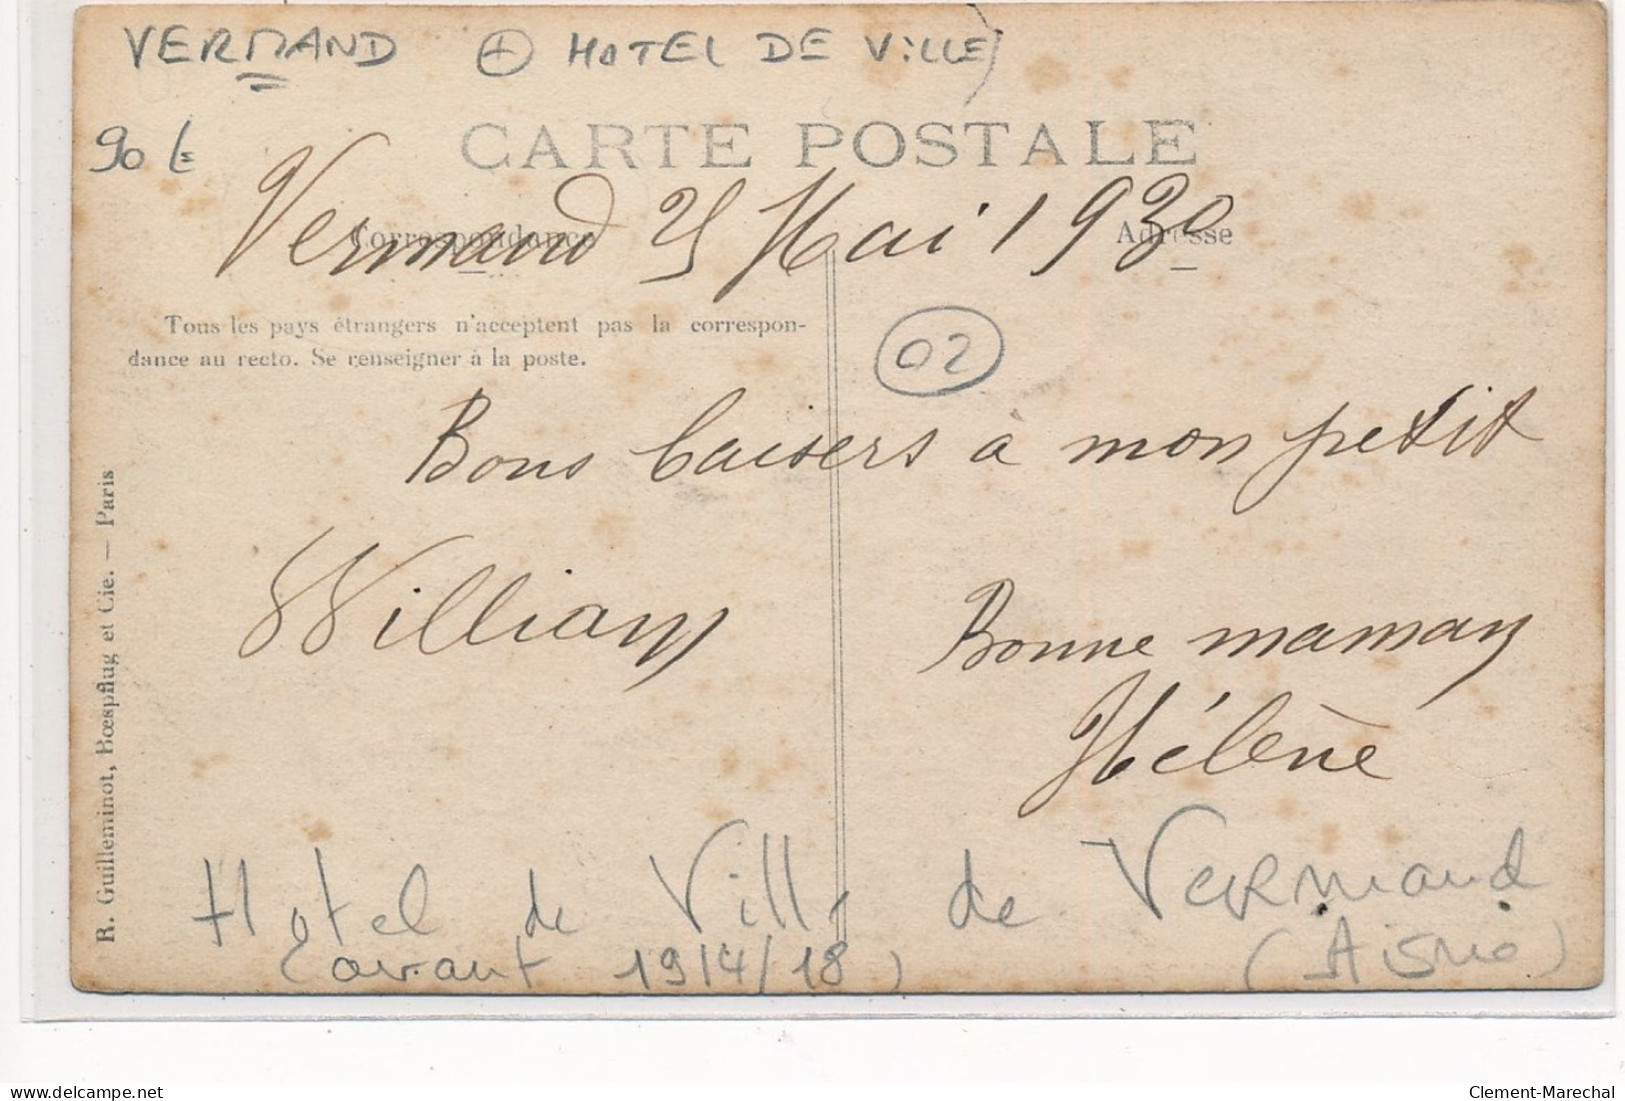 VERMAND + HOTEL DE VILLE)
90 €
CARTE POSTALE
Vermand 25 Mai 1930
Correspondance
Adresse
Tous les pays étrangers n'acceptent pas la correspon-
dance au recto. Se renseigner à la poste.
02
Bons baisers à mon petit
William
Bonne maman
Hélène
R. Guilleminot, Bœspflug et Cie. — Paris
Hotel de Ville de Vermand
(avant 1914/18) (Aisne)
delcampe.net
Clement-Marechal